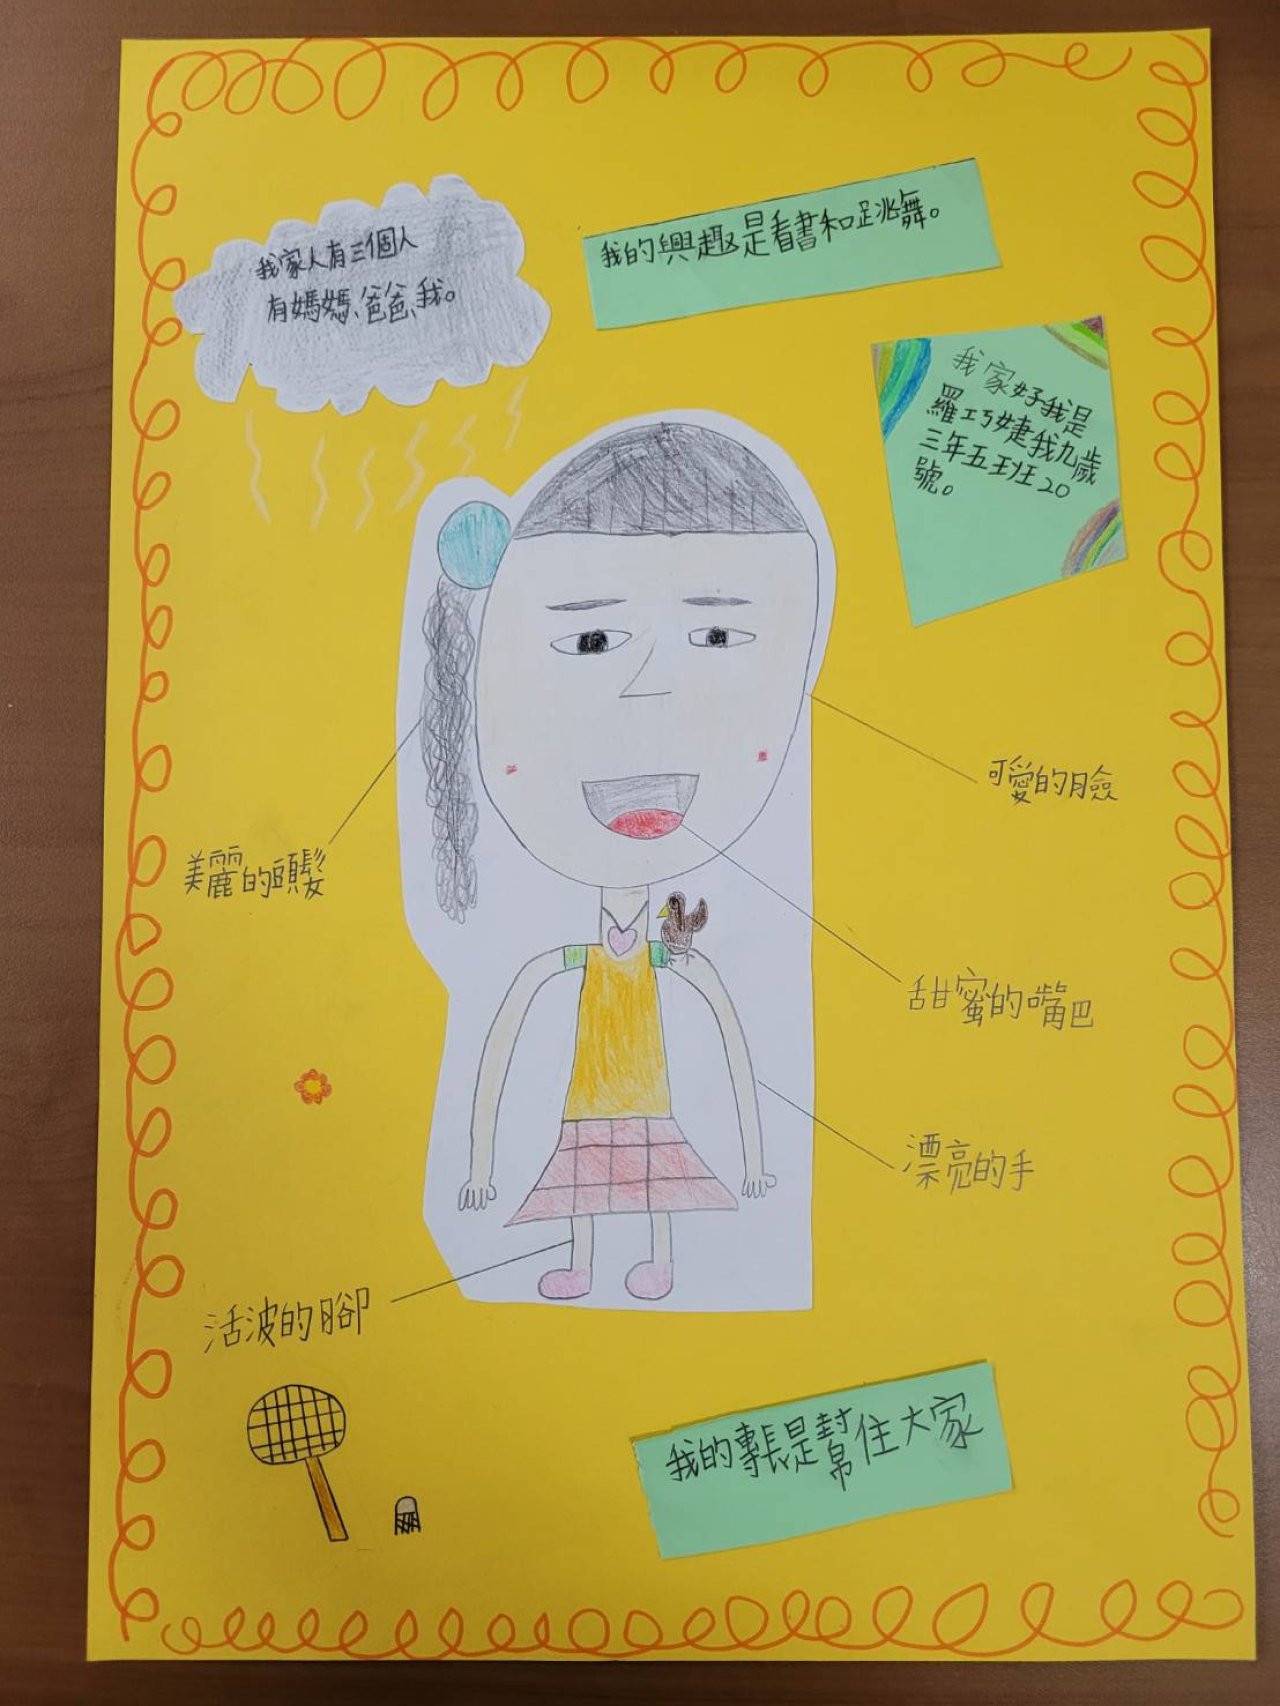 我家人有三個人
有媽媽、爸爸、我。
我的興趣是看書和跳舞。
我家好我是
羅巧婕我九歲
三年五班20
號。
可愛的臉
美麗的頭髮
甜蜜的嘴巴
漂亮的手
活波的腳
我的專長是幫住大家